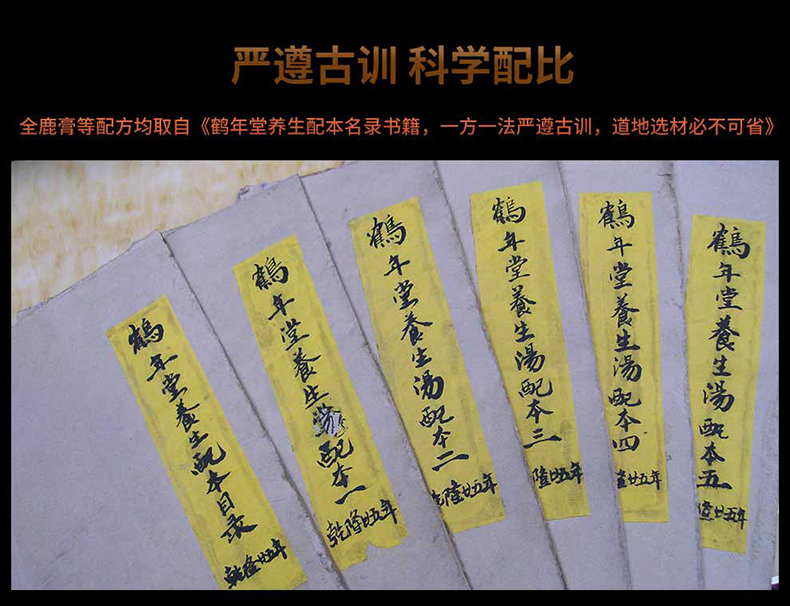 严遵古训 科学配比
全鹿膏等配方均取自《鹤年堂养生配本名录书籍，一方一法严遵古训，道地选材必不可省》
鶴年堂養生配本目录
乾隆廿五年
鶴年堂養生湯配本一
乾隆廿五年
鶴年堂養生湯配本二
乾隆廿五年
鶴年堂養生湯配本三
隆廿五年
鶴年堂養生湯配本四
隆廿五年
鶴年堂養生湯配本五
隆廿五年